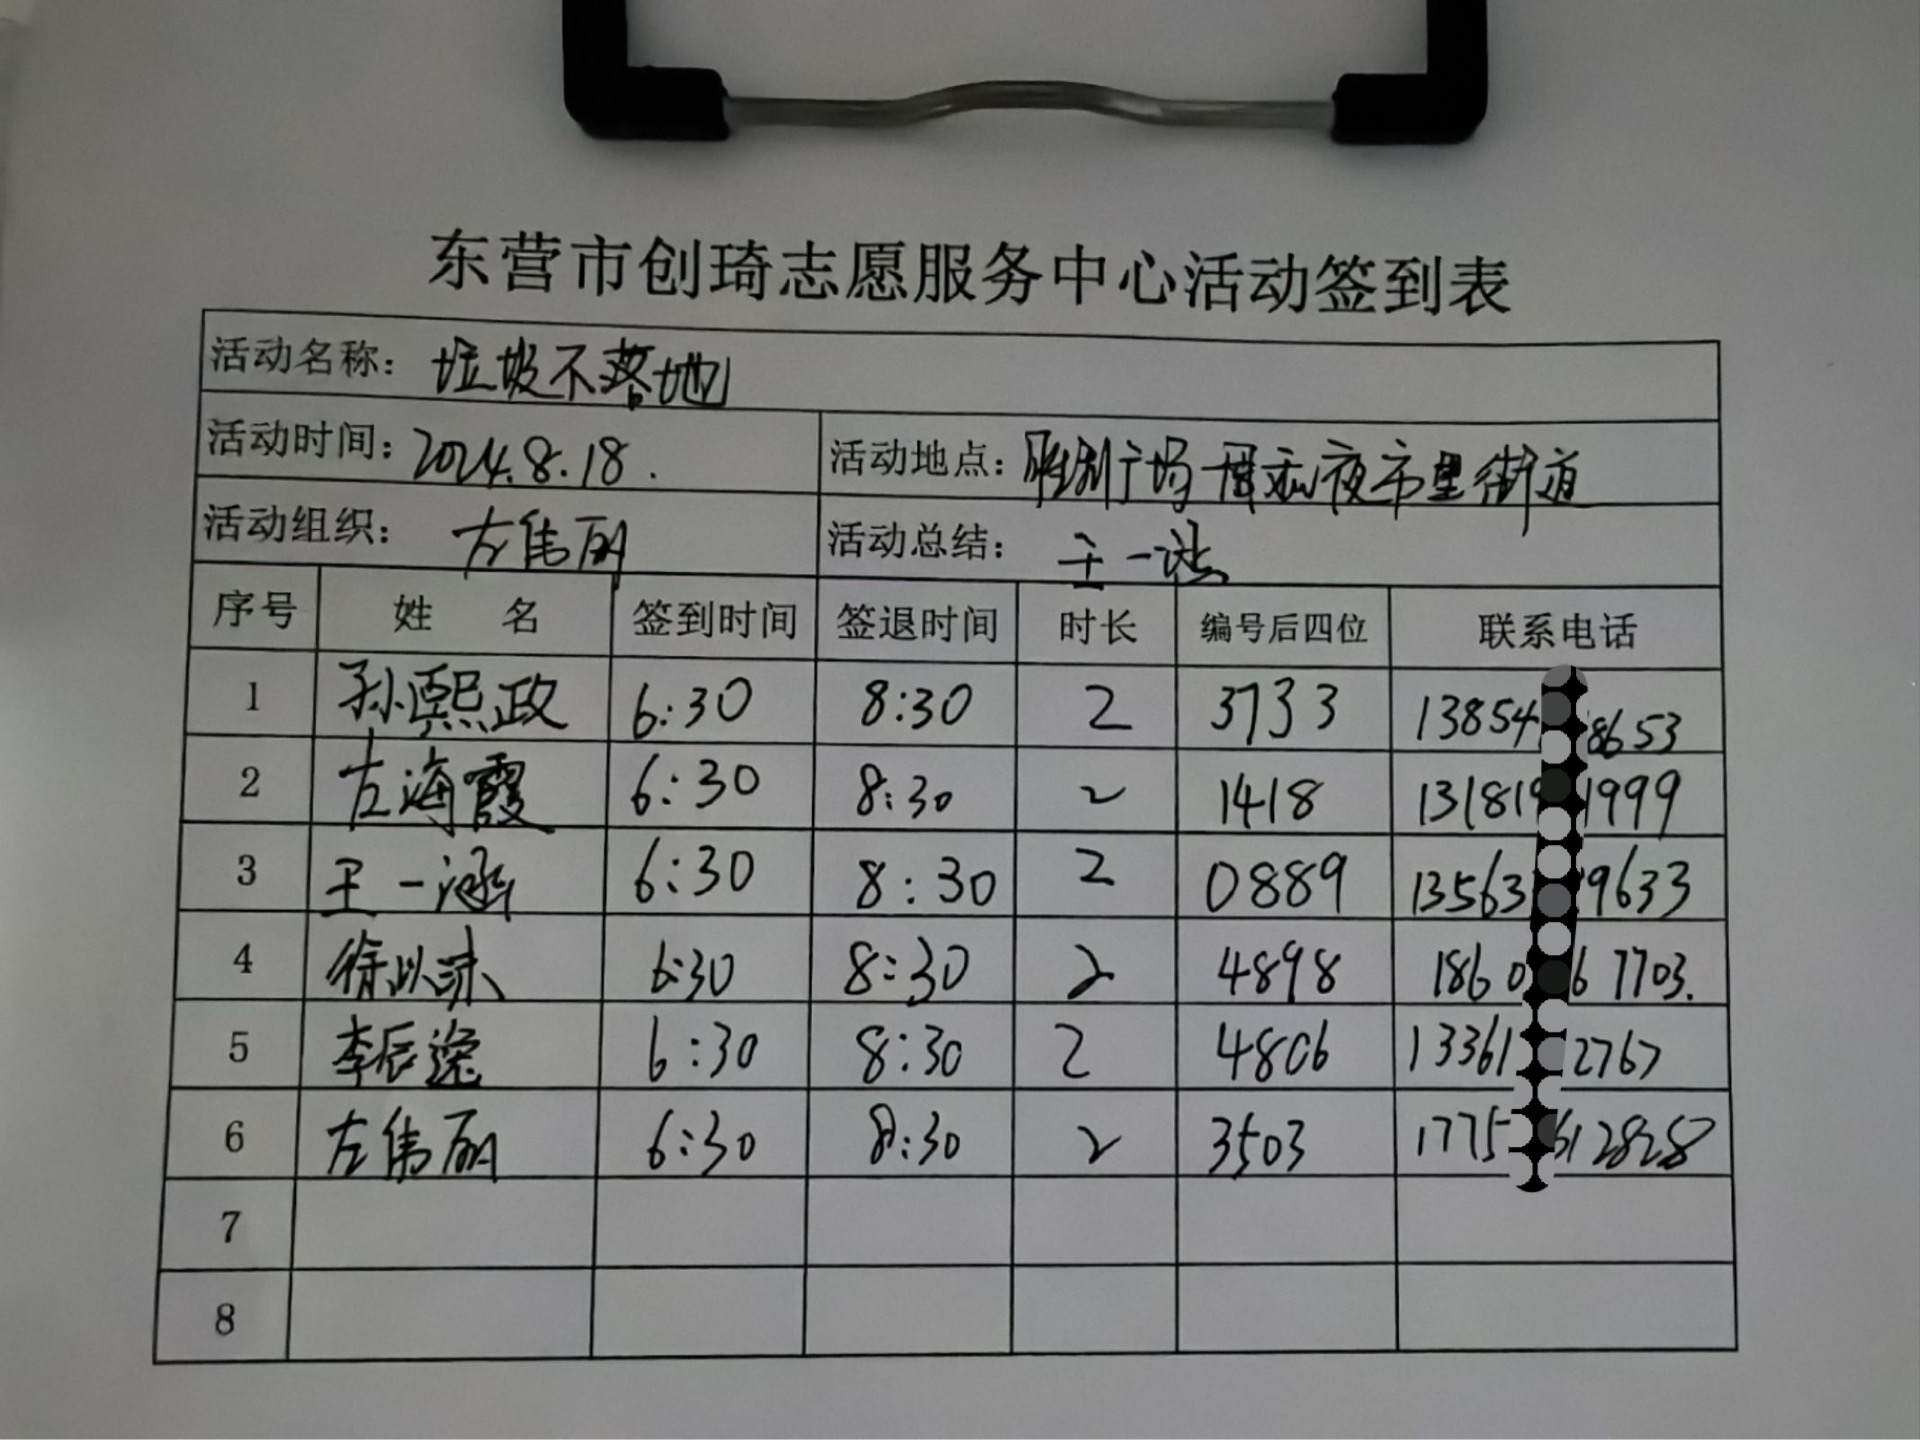 东营市创琦志愿服务中心活动签到表
活动名称：垃圾不落地
活动时间：2024.8.18. 活动地点：胜利广场 夜市里街道
活动组织：左伟丽 活动总结：王一涵
序号 姓 名 签到时间 签退时间 时长 编号后四位 联系电话
1 孙熙政 6:30 8:30 2 3733 13854 8653
2 左海霞 6:30 8:30 2 1418 131819 1999
3 王一涵 6:30 8:30 2 0889 13563 9633
4 徐以沫 6:30 8:30 2 4898 1860 67703.
5 李辰逸 6:30 8:30 2 4806 13361 2767
6 左伟丽 6:30 8:30 2 3503 1775 612828
7
8